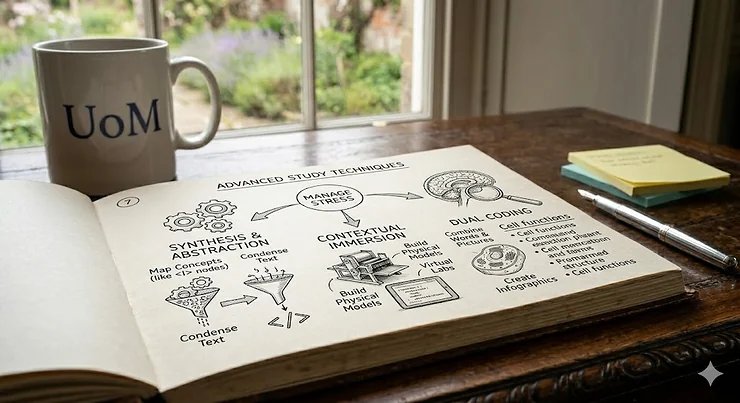 UoM
7
ADVANCED STUDY TECHNIQUES
MANAGE
STRESS
SYNTHESIS &
ABSTRACTION
Map Concepts
(like <I> nodes)
Condense
Text
Condense
Text
</>
CONTEXTUAL
IMMERSION
Build
Physical
Models
Virtual
Labs
Build
Physical
Models
DUAL CODING
Combine
Words &
Pictures
Create
Infographics
Cell functions
• Cell functions
• Cell
and forms
structure
• Cell functions